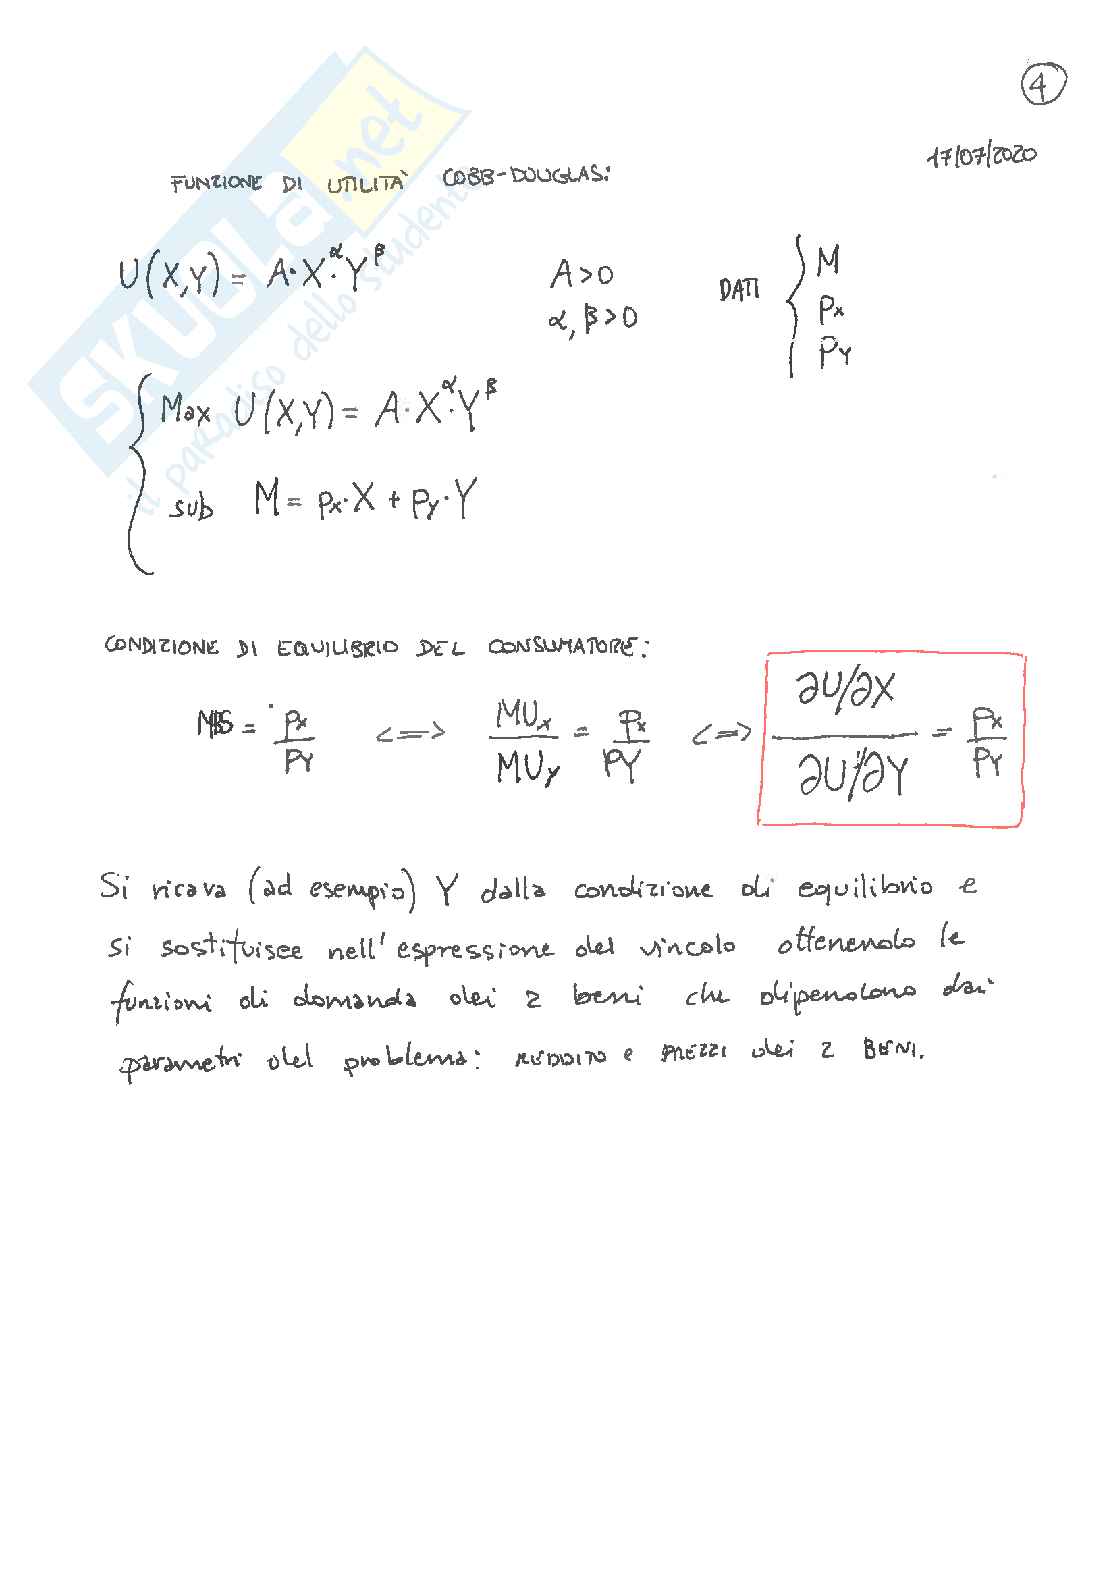 4
17/07/2020
SKUOLA.net
il paradiso dello studente
FUNZIONE DI UTILITÀ COBB-DOUGLAS:
U(X,Y) = A·X^α·Y^β
A>0
α, β>0
DATI { M
Px
PY
Max U(X,Y) = A·X^α·Y^β
sub M = Px·X + Py·Y
CONDIZIONE DI EQUILIBRIO DEL CONSUMATORE:
MRS = Px/PY <=> MUx/MUy = Px/PY <=> (∂U/∂X)/(∂U/∂Y) = Px/PY
Si ricava (ad esempio) Y dalla condizione di equilibrio e
si sostituisce nell'espressione del vincolo ottenendo le
funzioni di domanda dei 2 beni che dipendono dai
parametri del problema: REDDITO e PREZZI dei 2 BENI.